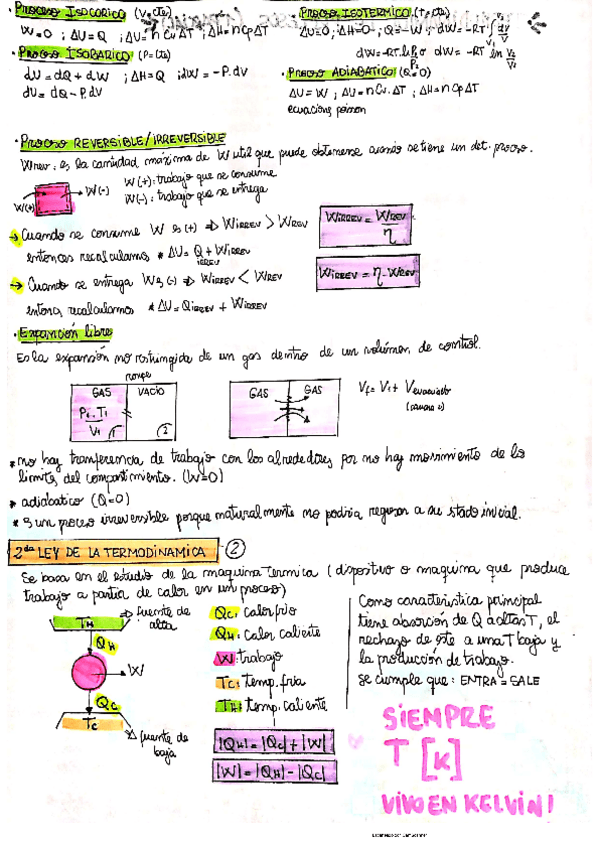 · PROCESO ISOCORICO (V=cte)
W=0 ; ΔU=Q ; ΔU=nCvΔT ; ΔH=nCpΔT
· PROCESO ISOBARICO (P=cte)
dU=dQ+dW ; ΔH=Q ; dW=-P.dV
dU=dQ-P.dV
PROCESO ISOTERMICO (T=cte)
ΔU=0; ΔH=0 ; Q=-W ; dW=-RT∫dV/V
dW=-RT ln P1/P2 o dW=-RT ln V2/V1
· PROCESO ADIABATICO (Q=0)
ΔU=W ; ΔU=nCv.ΔT ; ΔH=nCpΔT
ecuaciones poisson
· PROCESO REVERSIBLE/IRREVERSIBLE
Wrev: es la cantidad máxima de W util que puede obtenerse cuando se tiene un det. proceso.
W(+) → W(-)
W(+): trabajo que se consume
W(-): trabajo que se entrega
→ Cuando se consume W es (+) ⇒ WIRREV > WREV
entonces recalculamos * ΔU=Q IRREV + WIRREV
WIRREV = WREV/η
→ Cuando se entrega W es (-) ⇒ WIRREV < WREV
entonces recalculamos * ΔU=QIRREV + WIRREV
WIRREV = η.WREV
· Expanción libre
Es la expansión no restringida de un gas dentro de un volúmen de control.
rompe
GAS VACIO
P1.T1
V1 1 2
GAS GAS
Vf = V1 + Vevacuado
* no hay tranferencia de trabajo con los alrededores por no hay movimiento de los
limites del compartimiento. (W=0)
* adiabatico (Q=0)
* es un proceso irreversible porque naturalmente no podria regresar a su estado inicial.
2da LEY DE LA TERMODINAMICA 2
Se basa en el estudio de la maquina termica (dispotivo o maquina que produce
trabajo a partir de calor en un proceso)
TH → fuente de
alta
QH
→ W
QC
TC
fuente de
baja
QC: calor frio
QH: calor caliente
W: trabajo
TC: temp. fria
TH: temp. caliente
|QH|=|QC|+|W|
|W|=|QH|-|QC|
Como caracteristica principal
tiene absorción de Q a altas T, el
rechazo de éste a una T baja y
la producción de trabajo.
se cumple que: ENTRA = SALE
SIEMPRE
T [K]
VIVO EN KELVIN!